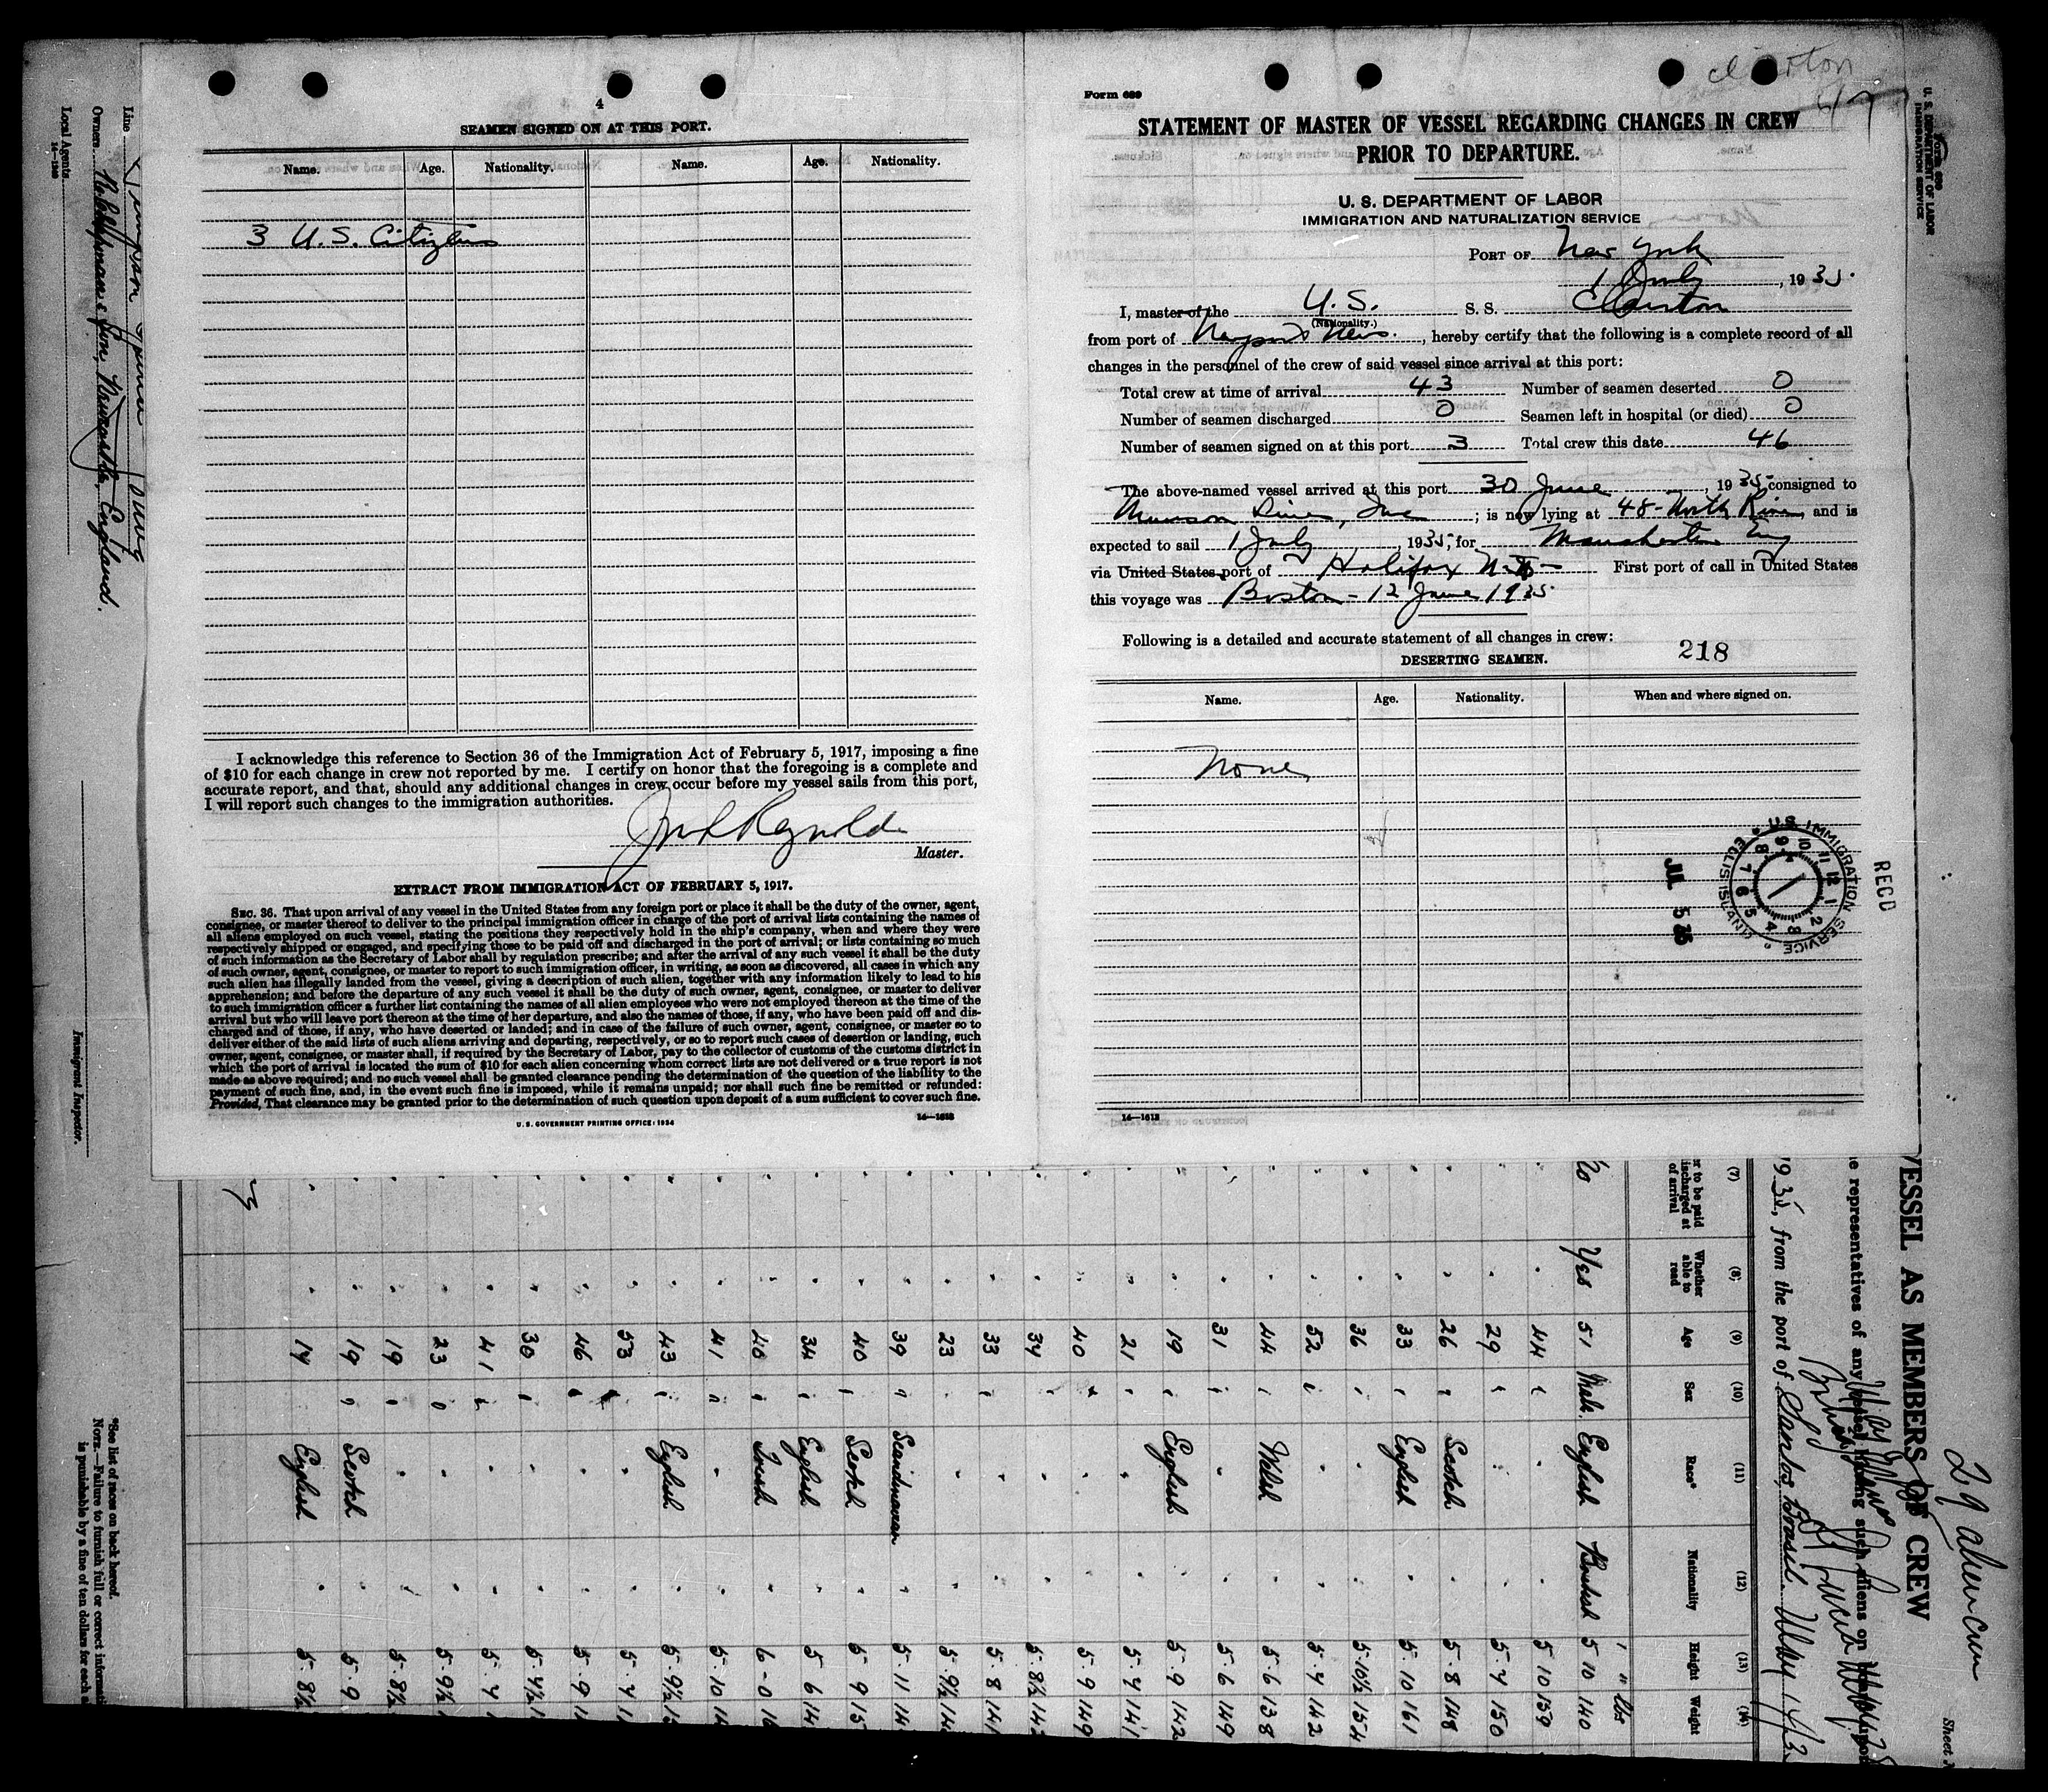 4
SEAMEN SIGNED ON AT THIS PORT.
Name. Age. Nationality. Name. Age. Nationality.
3 U.S. Citizens
I acknowledge this reference to Section 36 of the Immigration Act of February 5, 1917, imposing a fine
of $10 for each change in crew not reported by me. I certify on honor that the foregoing is a complete and
accurate report, and that, should any additional changes in crew occur before my vessel sails from this port,
I will report such changes to the immigration authorities.
Reynolds
Master.
EXTRACT FROM IMMIGRATION ACT OF FEBRUARY 5, 1917.
SEC. 36. That upon arrival of any vessel in the United States from any foreign port or place it shall be the duty of the owner, agent,
consignee, or master thereof to deliver to the principal immigration officer in charge of the port of arrival lists containing the names of
all aliens employed on such vessel, stating the positions they respectively hold in the ship's company, when and where they were
respectively shipped or engaged, and specifying those to be paid off and discharged in the port of arrival; or lists containing so much
of such information as the Secretary of Labor shall by regulation prescribe; and after the arrival of any such vessel it shall be the duty
of such owner, agent, consignee, or master to report to such immigration officer, in writing, as soon as discovered, all cases in which any
such alien has illegally landed from the vessel, giving a description of such alien, together with any information likely to lead to his
apprehension; and before the departure of any such vessel it shall be the duty of such owner, agent, consignee, or master to deliver
to such immigration officer a further list containing the names of all alien employees who were not employed thereon at the time of the
arrival but who will leave port thereon at the time of her departure, and also the names of those, if any, who have been paid off and dis-
charged and of those, if any, who have deserted or landed; and in case of the failure of such owner, agent, consignee, or master so to
deliver either of the said lists of such aliens arriving and departing, respectively, or so to report such cases of desertion or landing, such
owner, agent, consignee, or master shall, if required by the Secretary of Labor, pay to the collector of customs of the customs district in
which the port of arrival is located the sum of $10 for each alien concerning whom correct lists are not delivered or a true report is not
made as above required; and no such vessel shall be granted clearance pending the determination of the question of the liability to the
payment of such fine, and, in the event such fine is imposed, while it remains unpaid; nor shall such fine be remitted or refunded:
Provided, That clearance may be granted prior to the determination of such question upon deposit of a sum sufficient to cover such fine.
U.S. GOVERNMENT PRINTING OFFICE: 1934
14—1613
Form 689
Clairton
STATEMENT OF MASTER OF VESSEL REGARDING CHANGES IN CREW
PRIOR TO DEPARTURE.
U. S. DEPARTMENT OF LABOR
IMMIGRATION AND NATURALIZATION SERVICE
PORT OF New York
1 July, 1935.
I, master of the U.S. S. S. Clairton
(Nationality.)
from port of Newport News., hereby certify that the following is a complete record of all
changes in the personnel of the crew of said vessel since arrival at this port:
Total crew at time of arrival 43 Number of seamen deserted 0
Number of seamen discharged 0 Seamen left in hospital (or died) 0
Number of seamen signed on at this port 3 Total crew this date 46
The above-named vessel arrived at this port 30 June, 1935 consigned to
Munson Line, Inc; is now lying at 48-North River, and is
expected to sail 1 July, 1935, for Manchester Eng
via United States port of Halifax N.S. First port of call in United States
this voyage was Boston - 12 June 1935
Following is a detailed and accurate statement of all changes in crew:
218
DESERTING SEAMEN.
Name. Age. Nationality. When and where signed on.
None
RECD
U.S. IMMIGRATION SERVICE
ELLIS ISLAND
JUL 5 35
14—1613
Form 689
U. S. DEPARTMENT OF LABOR
IMMIGRATION SERVICE
Line
Owners Newcastle, England.
Local Agents
Immigrant Inspector.
29 alien crew
VESSEL AS MEMBERS OF CREW
representatives of any vessel having such aliens on
1935, from the port of Santos, Brasil.
(7) (8) (9) (10) (11) (12) (13) (14)
Whether able to read Age Sex Race* Nationality Height Weight
Yes 51 Male English British 5 10 140
44 5 10 159
29 5.4 150
26 Scotch 5.8 148
33 English 5.10 161
36 5.10½ 154
52 5.4 142
44 Welsh 5.6 138
31 5.6 149
19 English 5.9 142
21 5.4 141
40 5.9 149
34 5.8½
33 5.8 141
23 5.9½
39 Scandinavian 5.11
40 Scotch 5.9
34 English 5.6
40 Irish 6-0
41 5.10
43 English 5.9½
53 5.4
46 5.9
30 5.4½
41 5.4
23 5.9½
19 5.8½
19 Scotch 5.9
17 English 5.8½
*See list of races on back hereof.
NOTE.—Failure to furnish full or correct
is punishable by a fine of ten dollars for each